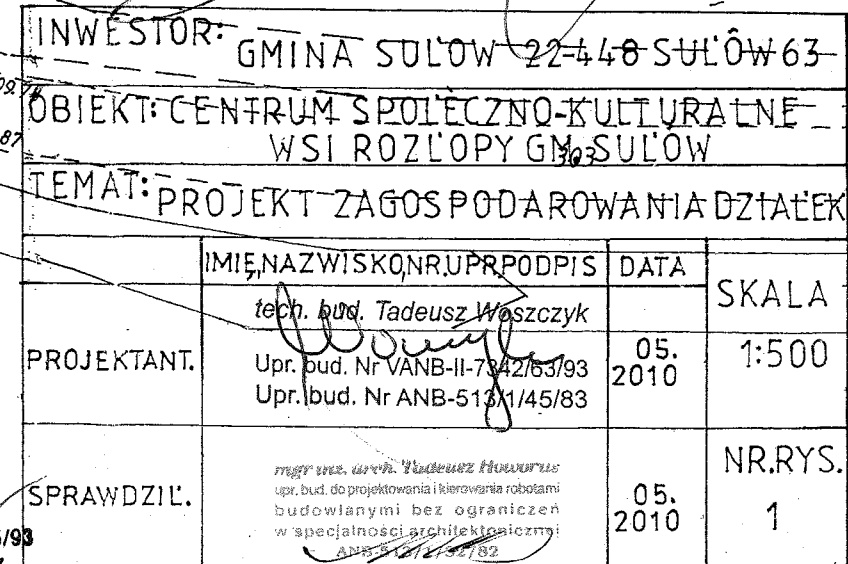 INWESTOR: GMINA SUŁÓW 22-448 SUŁÓW 63
OBIEKT: CENTRUM SPOŁECZNO-KULTURALNE
WSI ROZŁOPY GM. SUŁÓW
303
TEMAT: PROJEKT ZAGOSPODAROWANIA DZIAŁEK
IMIĘ,NAZWISKO,NR.UPR.PODPIS DATA
SKALA
1:500
tech. bud. Tadeusz Woszczyk
PROJEKTANT.
Upr. bud. Nr VANB-II-7342/63/93
Upr. bud. Nr ANB-513/1/45/83
05.
2010
mgr inż. arch. Tadeusz
upr. bud. do projektowania i kierowania robotami
budowlanymi bez ograniczeń
w specjalności architektonicznej
ANB-513/1/52/82
SPRAWDZIŁ.
05.
2010
NR.RYS.
1
87
/93